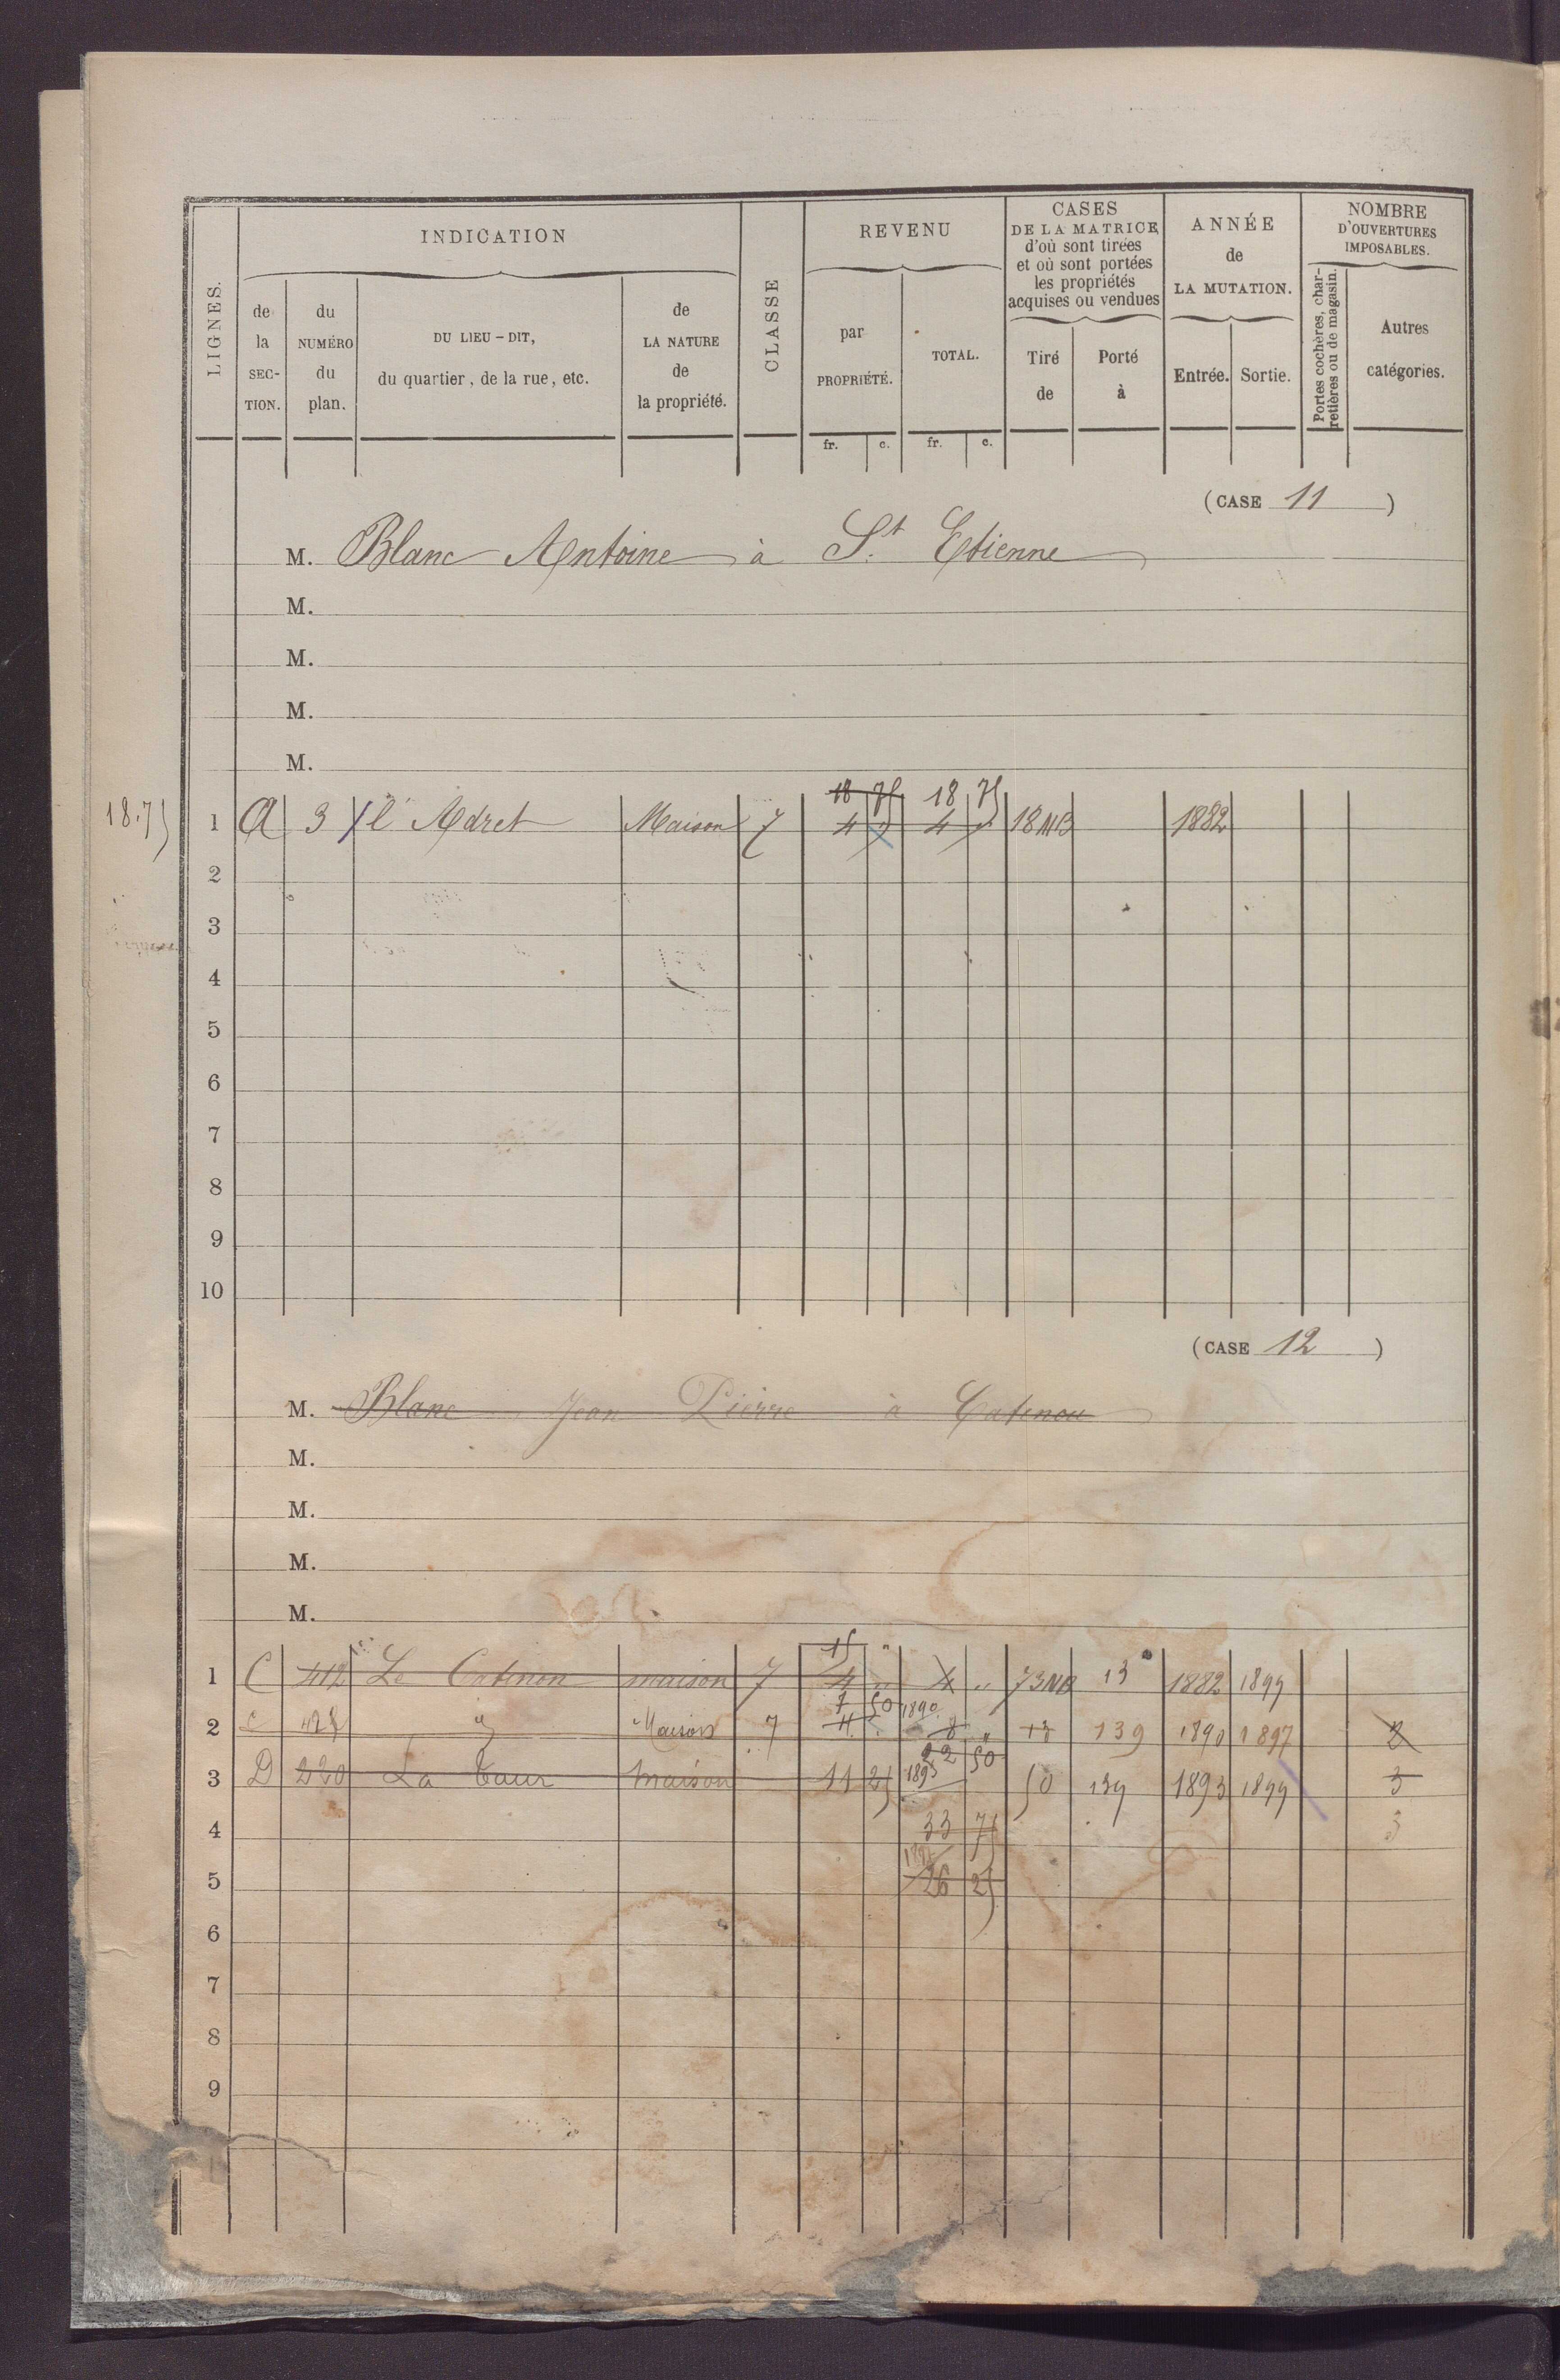 LIGNES. INDICATION CLASSE REVENU CASES DE LA MATRICE d'où sont tirées et où sont portées les propriétés acquises ou vendues ANNÉE de LA MUTATION. NOMBRE D'OUVERTURES IMPOSABLES.
de la SECTION. du NUMÉRO du plan. DU LIEU-DIT, du quartier, de la rue, etc. de LA NATURE de la propriété. par PROPRIÉTÉ. TOTAL. Tiré de Porté à Entrée. Sortie. Portes cochères, charretières ou de magasin. Autres catégories.
fr. c. fr. c.
(CASE 11)
M. Blanc Antoine à St. Etienne
M.
M.
M.
M.
18 75 18 75
18.75 1 A 3 l'Adret Maison 7 4 " 4 " 18 1882
2
3
4
5
6
7
8
9
10
(CASE 12)
M. Blanc Jean Pierre à Catinou
M.
M.
M.
M.
15 "
1 C 412 Le Catinon maison 7 4 " 4 " 73 13 1882 1899
7 50 1890
2 C 428 id Maison 7 4 8 " 13 139 1890 1897 2
22 50
3 D 220 La Cour maison 11 25 1893 50 139 1893 1899 3
4 33 75 3
5 26 25
6
7
8
9